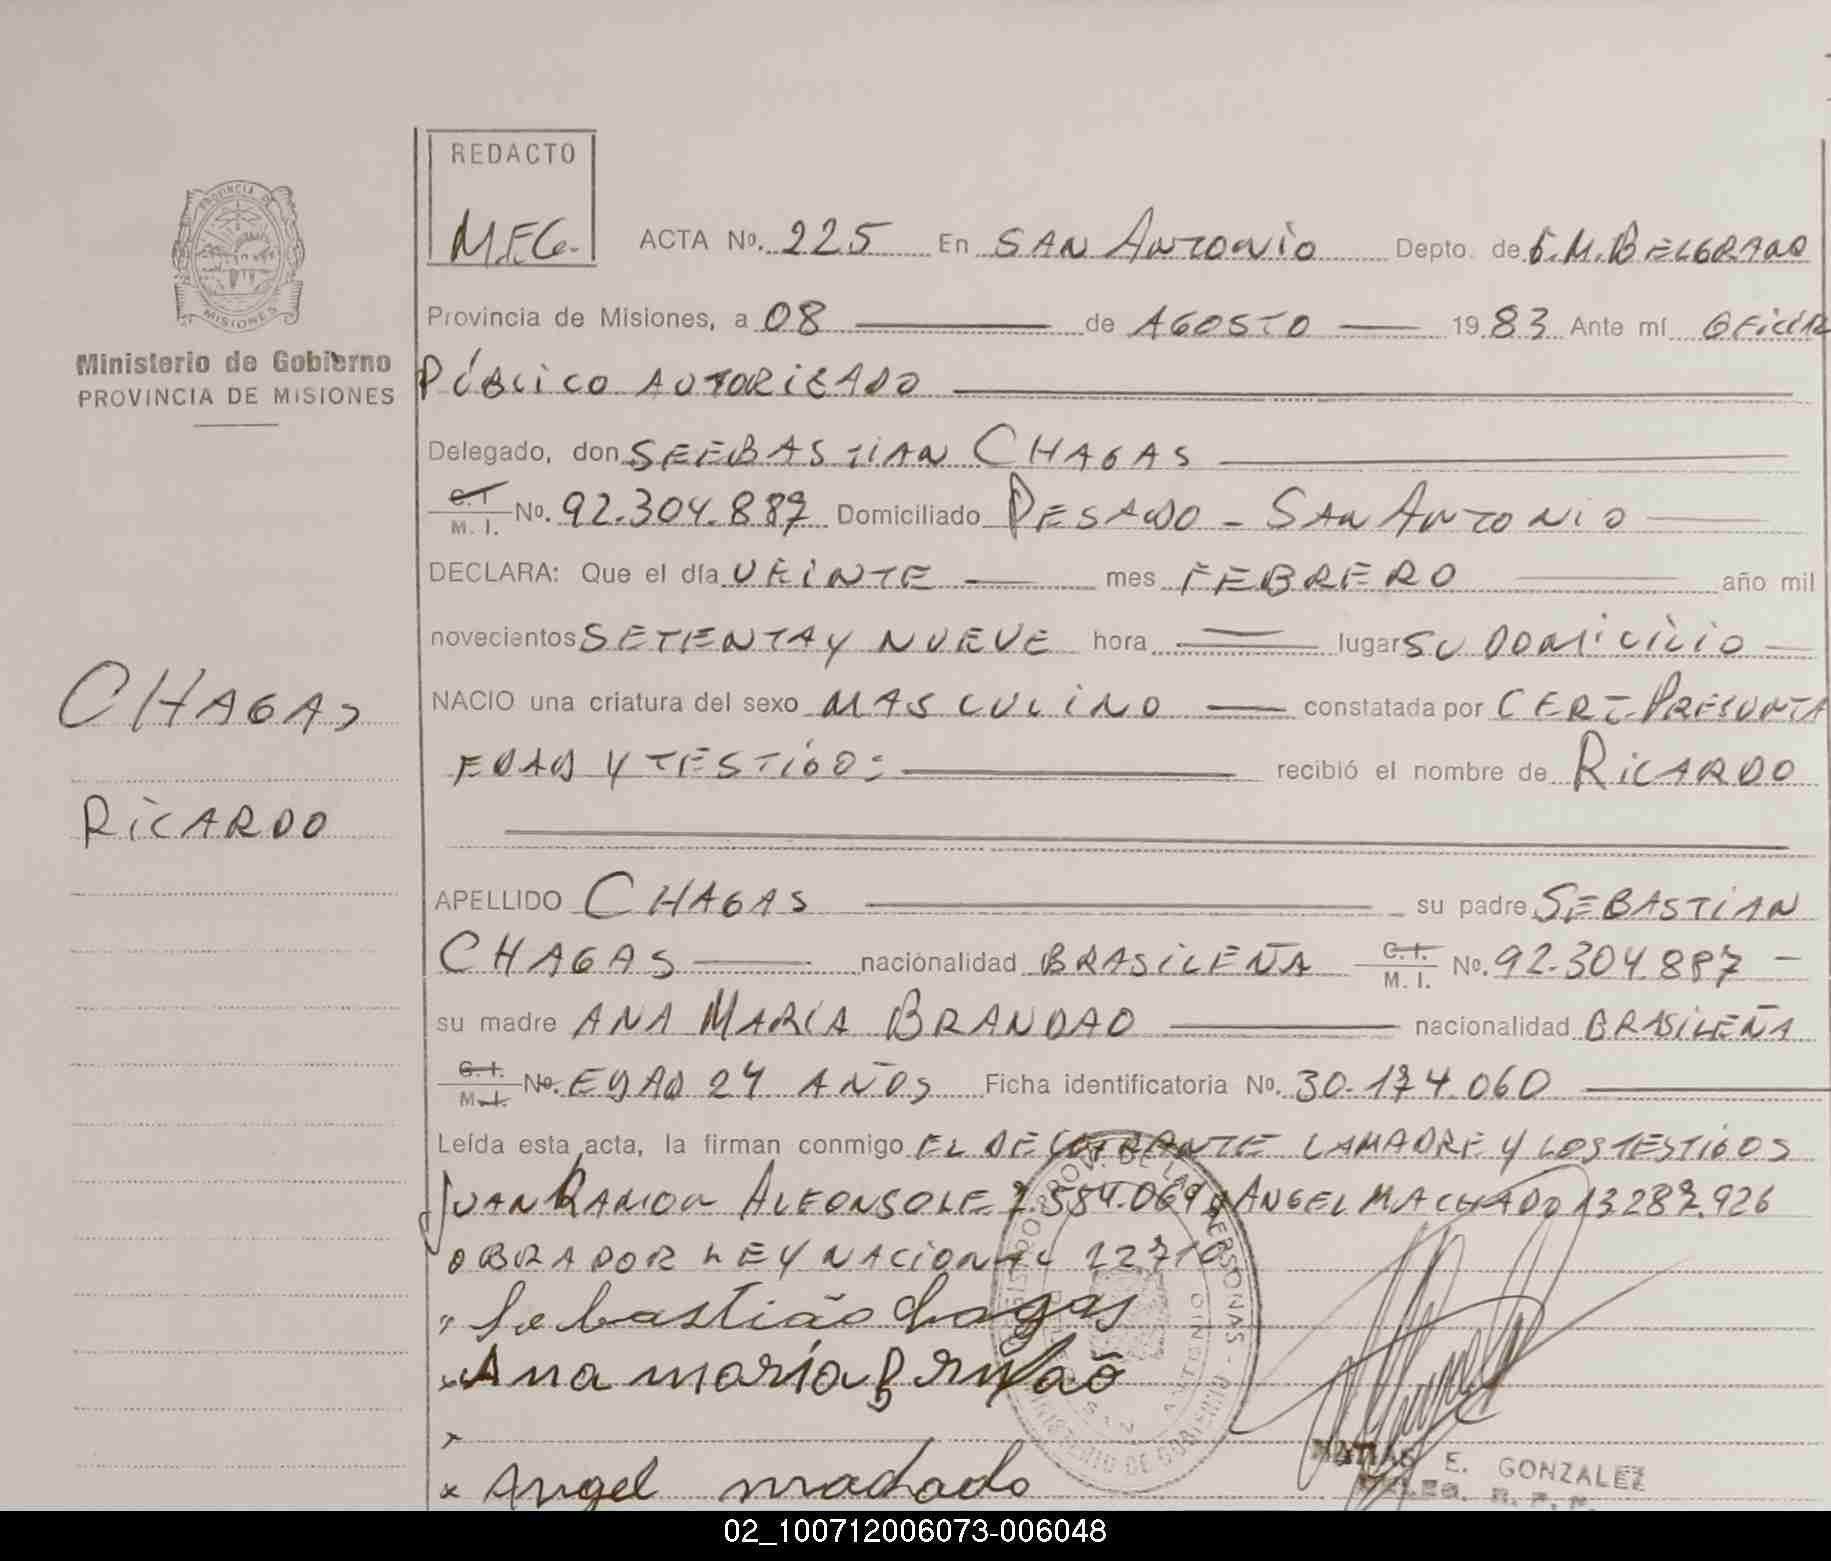 REDACTO
M.E.G.
ACTA Nº. 225 En SAN ANTONIO Depto. de G.M. BELGRANO
Provincia de Misiones, a 08 de AGOSTO 1983 Ante mí OFICIAL
PÚBLICO AUTORIZADO
Delegado, don SEEBASTIAN CHAGAS
C.I. M. I. Nº. 92.304.887 Domiciliado PESADO - SAN ANTONIO
DECLARA: Que el día VEINTE mes FEBRERO año mil
novecientos SETENTA Y NUEVE hora lugar SU DOMICILIO
NACIO una criatura del sexo MASCULINO constatada por CERT. PRESUNTA
EDAD Y TESTIGO: recibió el nombre de RICARDO
APELLIDO CHAGAS su padre SEBASTIAN
CHAGAS nacionalidad BRASILEÑA C.I. M. I. Nº. 92.304.887
su madre ANA MARIA BRANDAO nacionalidad BRASILEÑA
C.I. M.I. Nº. EDAD 24 AÑOS Ficha identificatoria Nº. 30.174.060
Leída esta acta, la firman conmigo EL DECLARANTE LA MADRE Y LOS TESTIGOS
JUAN RAMON ALFONSO LE 7.584.069 y ANGEL MACHADO 13287.926
OBRADOR LEY NACIONAL 22710
Sebastião Chagas
Ana maría
x Angel machado
PROVINCIA DE
MISIONES
Ministerio de Gobierno
PROVINCIA DE MISIONES
CHAGAS
RICARDO
REGISTRO PROV. DE LAS PERSONAS
MINISTERIO DE GOBIERNO
SAN ANTONIO
MATIAS E. GONZALEZ
02_100712006073-006048